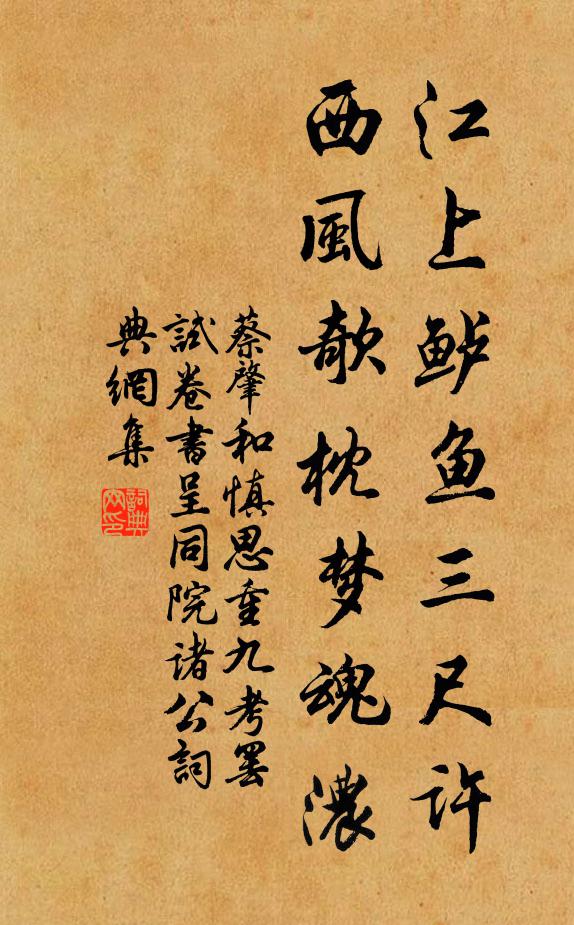 江上鲈鱼三尺许
西風欹枕梦魂濃
蔡肇和慎思重九考罢
試卷書呈同院诸公詞
典網集
詞典网印